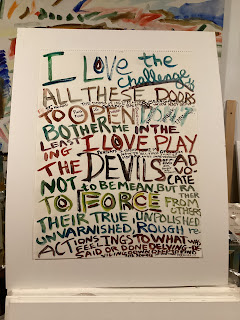 I LOVE the
challenge
ALL THESE DOORS
TO OPEN DON'T
BOTHER ME IN THE
LEAST
ING I LOVE PLAY
THE DEVILS AD
VO
CATE
NOT to BE MEAN, BUT RA
THER
TO FORCE FROM
OTHERS
THEIR TRUE, UNPOLISHED
UNVARNISHED, ROUGH re
ACTIONS FEELINGS TO WHAT WAS
SAID OR DONE DELVING